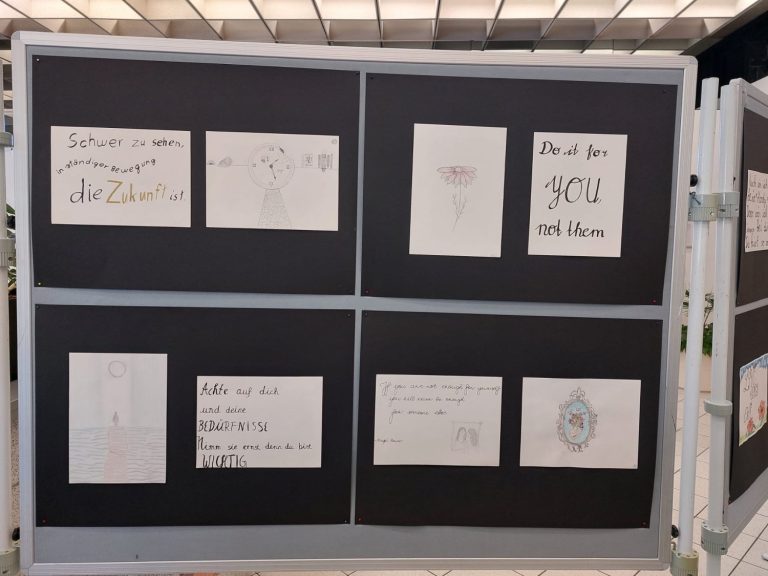 Schwer zu sehen,
in ständiger Bewegung
die Zukunft ist.
Do it for
YOU,
not them
Achte auf dich
und deine
BEDÜRFNISSE
Nimm sie ernst denn du bist
WICHTIG
If you are not enough for yourself
you will never be enough
for someone else